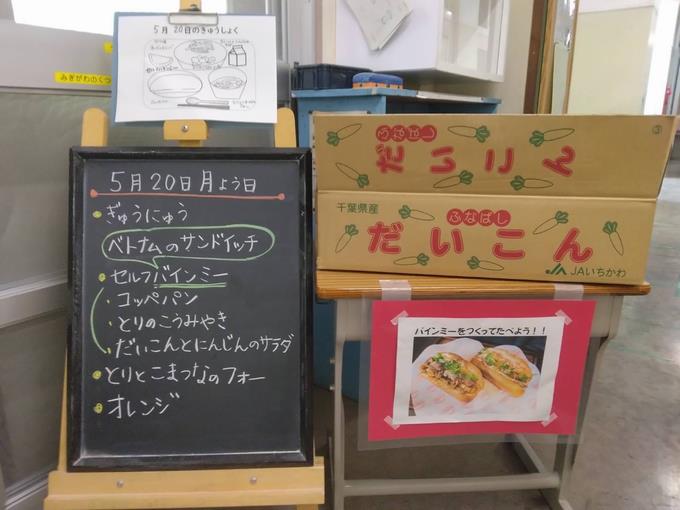 5月20日のきゅうしょく
みぎがわのくつ
5月20日月よう日
ぎゅうにゅう
ベトナムのサンドイッチ
セルフバインミー
・コッペパン
・とりのこうみやき
・だいこんとにんじんのサラダ
とりとこまつなのフォー
オレンジ
ふなばし
だいこん
千葉県産
ふなばし
だいこん
JAいちかわ
バインミーをつくってたべよう!!